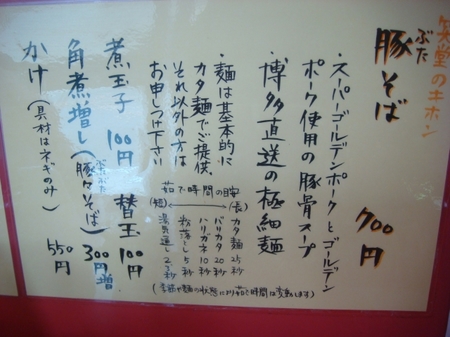 笑堂のキホン
豚そば 700円
ぶた
・スーパーゴールデンポークとゴールデン
ポーク使用の豚骨スープ
博多直送の極細麺
・麺は基本的に
カタ麺でご提供。
それ以外の方は
お申しつけ下さい
茹で時間の目安
(短) (長)
カタ麺 25秒
バリカタ 20秒
ハリガネ 10秒
粉落し 5秒
湯気通し 2,3秒
(季節や麺の状態により茹で時間は変動します)
煮玉子 100円
替玉 100円
角煮増し(豚角そば) 300円増
かけ(具材はネギのみ) 550円